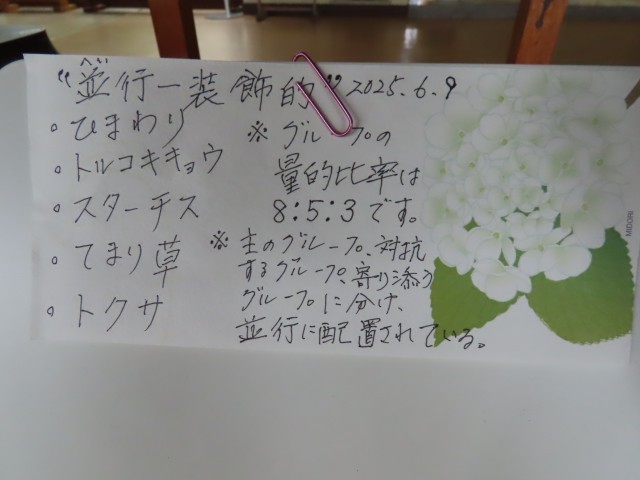 “並行ー装飾的” 2025.6.9
。ひまわり
。トルコキキョウ
。スターチス
。てまり草
。トクサ
※グループの
量的比率は
8:5:3です。
※主のグループ、対抗
するグループ、寄り添う
グループに分け、
並行に配置されている。
MIDORI